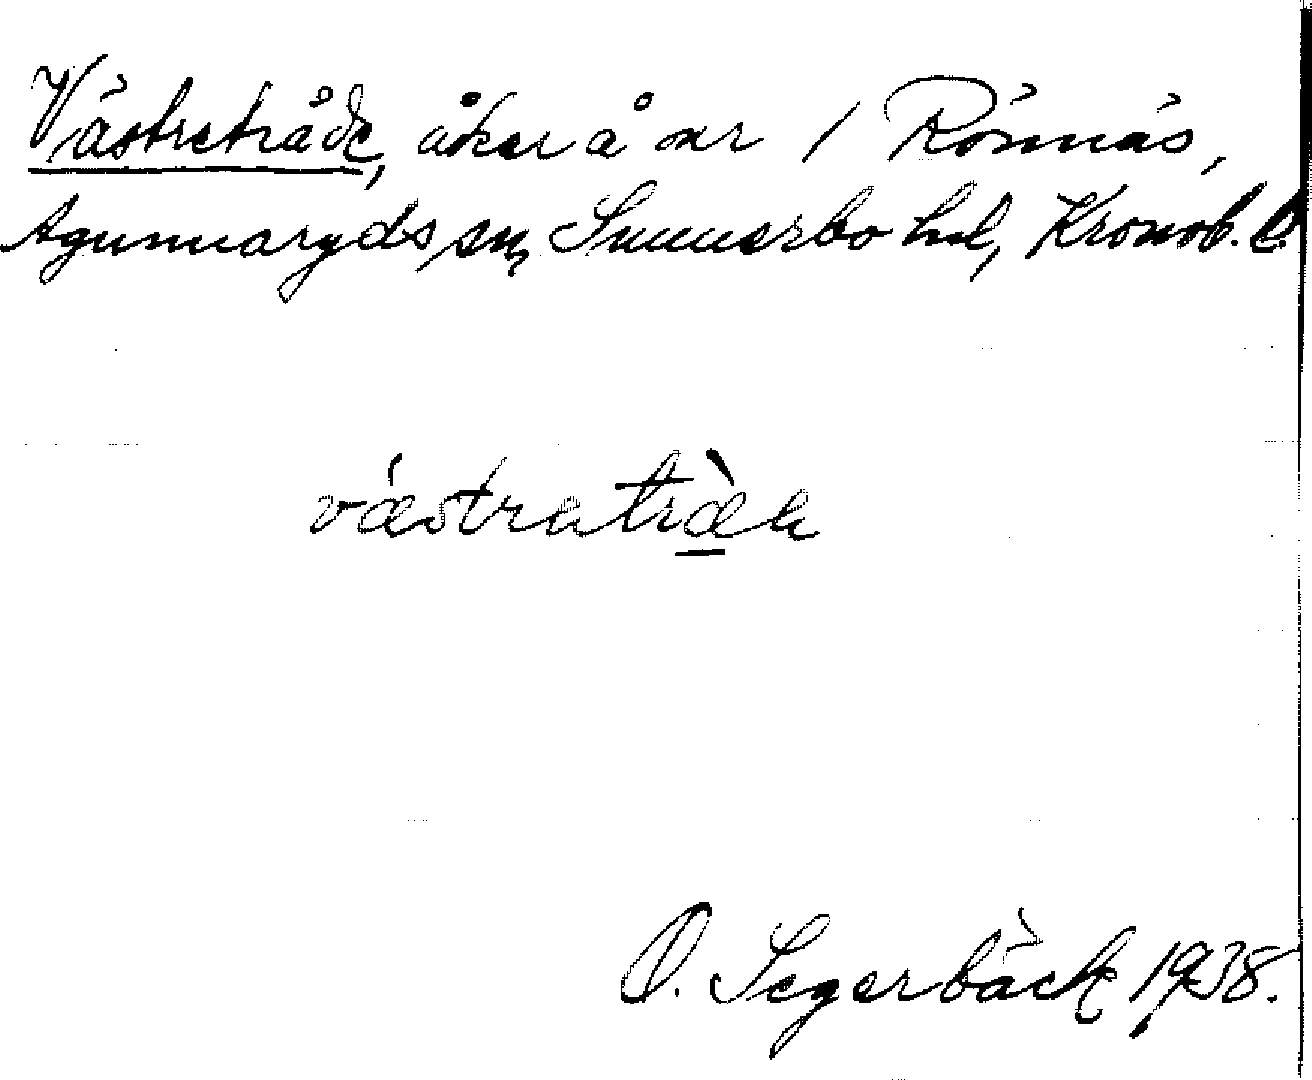 Västreträde, åker å nr 1 Rönnäs,
Agunnaryds sn, Sunnerbo hd, Kronob. l.
västratræa
O. Segerbäck 1938.